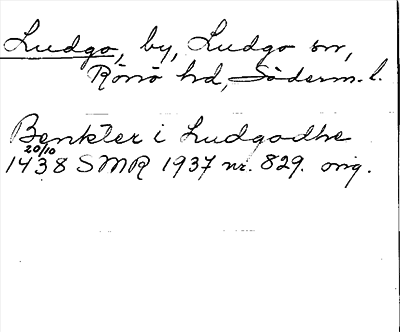 Ludgo, by, Ludgo sn,
Rönö hd, Söderm. l.
Benkter i Ludgodhe
20/10
1438 SMR 1937 nr. 829. orig.